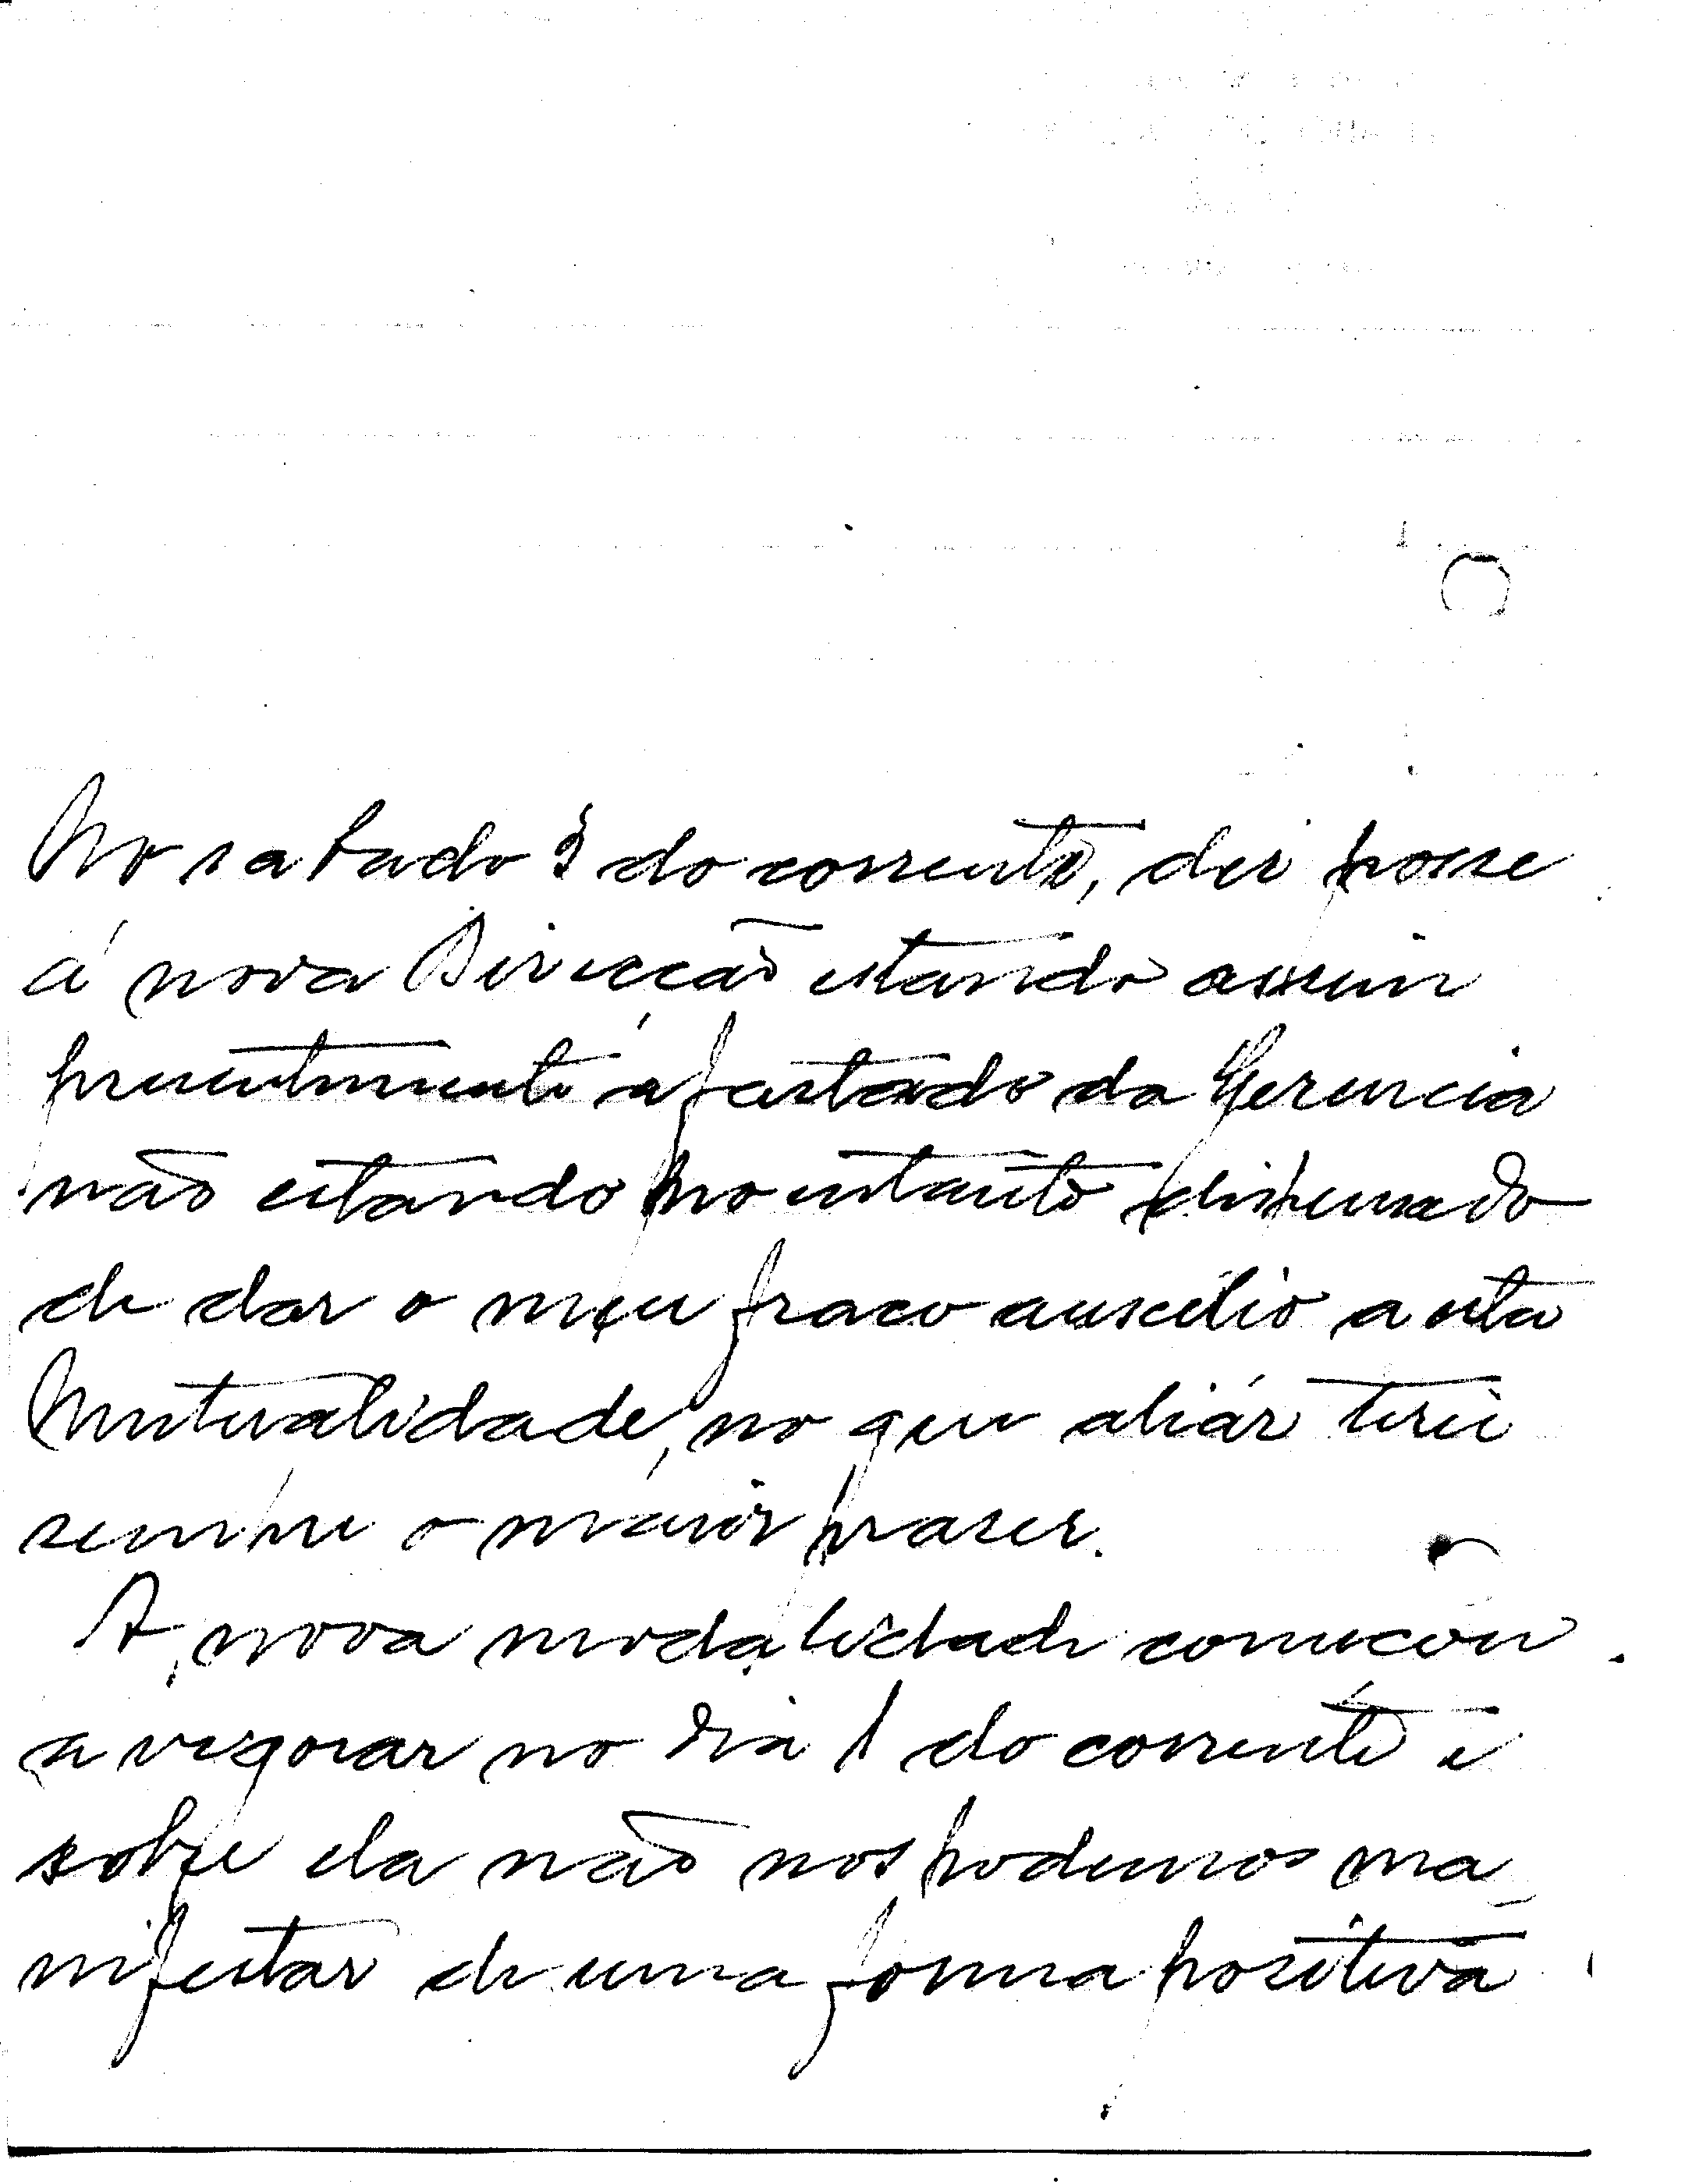 No sabado 3 do corrente, dei posse
á nova Direcção estando assim
presentemente afastado da Gerencia
não estando no entanto dispensado
de dar o meu fraco auscilio a esta
Mutualidade, no que aliás terei
sempre o maior praser.
A nova modalidade começou
a vigorar no dia 1 do corrente e
sobre ela não nos podemos ma
nifestar de uma forma positiva